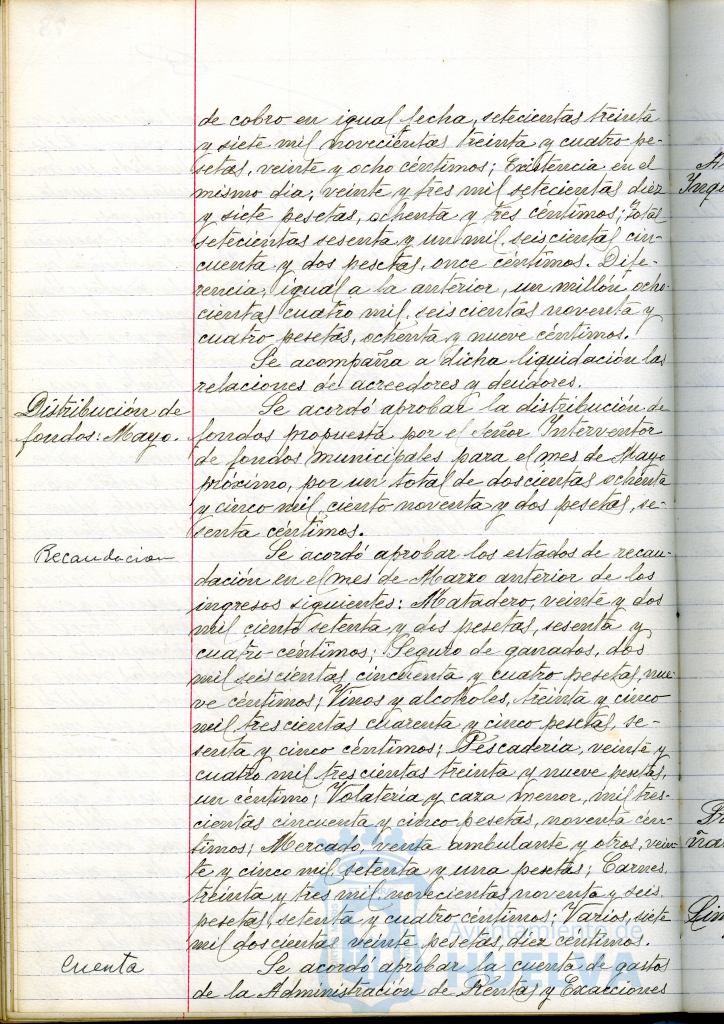 de cobro en igual fecha, setecientas treinta
y siete mil novecientas treinta y cuatro pe-
setas, veinte y ocho céntimos; Existencia en el
mismo día, veinte y tres mil setecientas diez
y siete pesetas, ochenta y tres céntimos; Total
setecientas sesenta y un mil, seiscientas cin-
cuenta y dos pesetas, once céntimos. Dife-
rencia, igual a la anterior, un millón ocho-
cientas cuatro mil, seiscientas noventa y
cuatro pesetas, ochenta y nueve céntimos.
Se acompaña a dicha liquidación las
relaciones de acreedores y deudores.
Distribución de
fondos: Mayo.
Se acordó aprobar la distribución de
fondos propuesta por el Señor Interventor
de fondos municipales para el mes de Mayo
próximo, por un total de doscientas ochenta
y cinco mil, ciento noventa y dos pesetas, se-
senta céntimos.
Recaudacion
Se acordó aprobar los estados de recau-
dación en el mes de Marzo anterior de los
ingresos siguientes: Matadero, veinte y dos
mil ciento setenta y dos pesetas, sesenta y
cuatro céntimos; Seguro de ganados, dos
mil seiscientas cincuenta y cuatro pesetas, nue-
ve céntimos; Vinos y alcoholes, treinta y cinco
mil trescientas cuarenta y cinco pesetas, se-
senta y cinco céntimos; Pescaderia, veinte y
cuatro mil trescientas treinta y nueve pesetas,
un céntimo; Volateria y caza menor, mil tres-
cientas cincuenta y cinco pesetas, noventa cén-
timos; Mercado, venta ambulante y otros, vein-
te y cinco mil setenta y una pesetas; Carnes,
treinta y tres mil, novecientas noventa y seis
pesetas, setenta y cuatro céntimos; Varios, siete
mil doscientas veinte pesetas, diez céntimos.
Cuenta
Se acordó aprobar la cuenta de gastos
de la Administración de Rentas y Exacciones
Ayuntamiento de
HUELVA